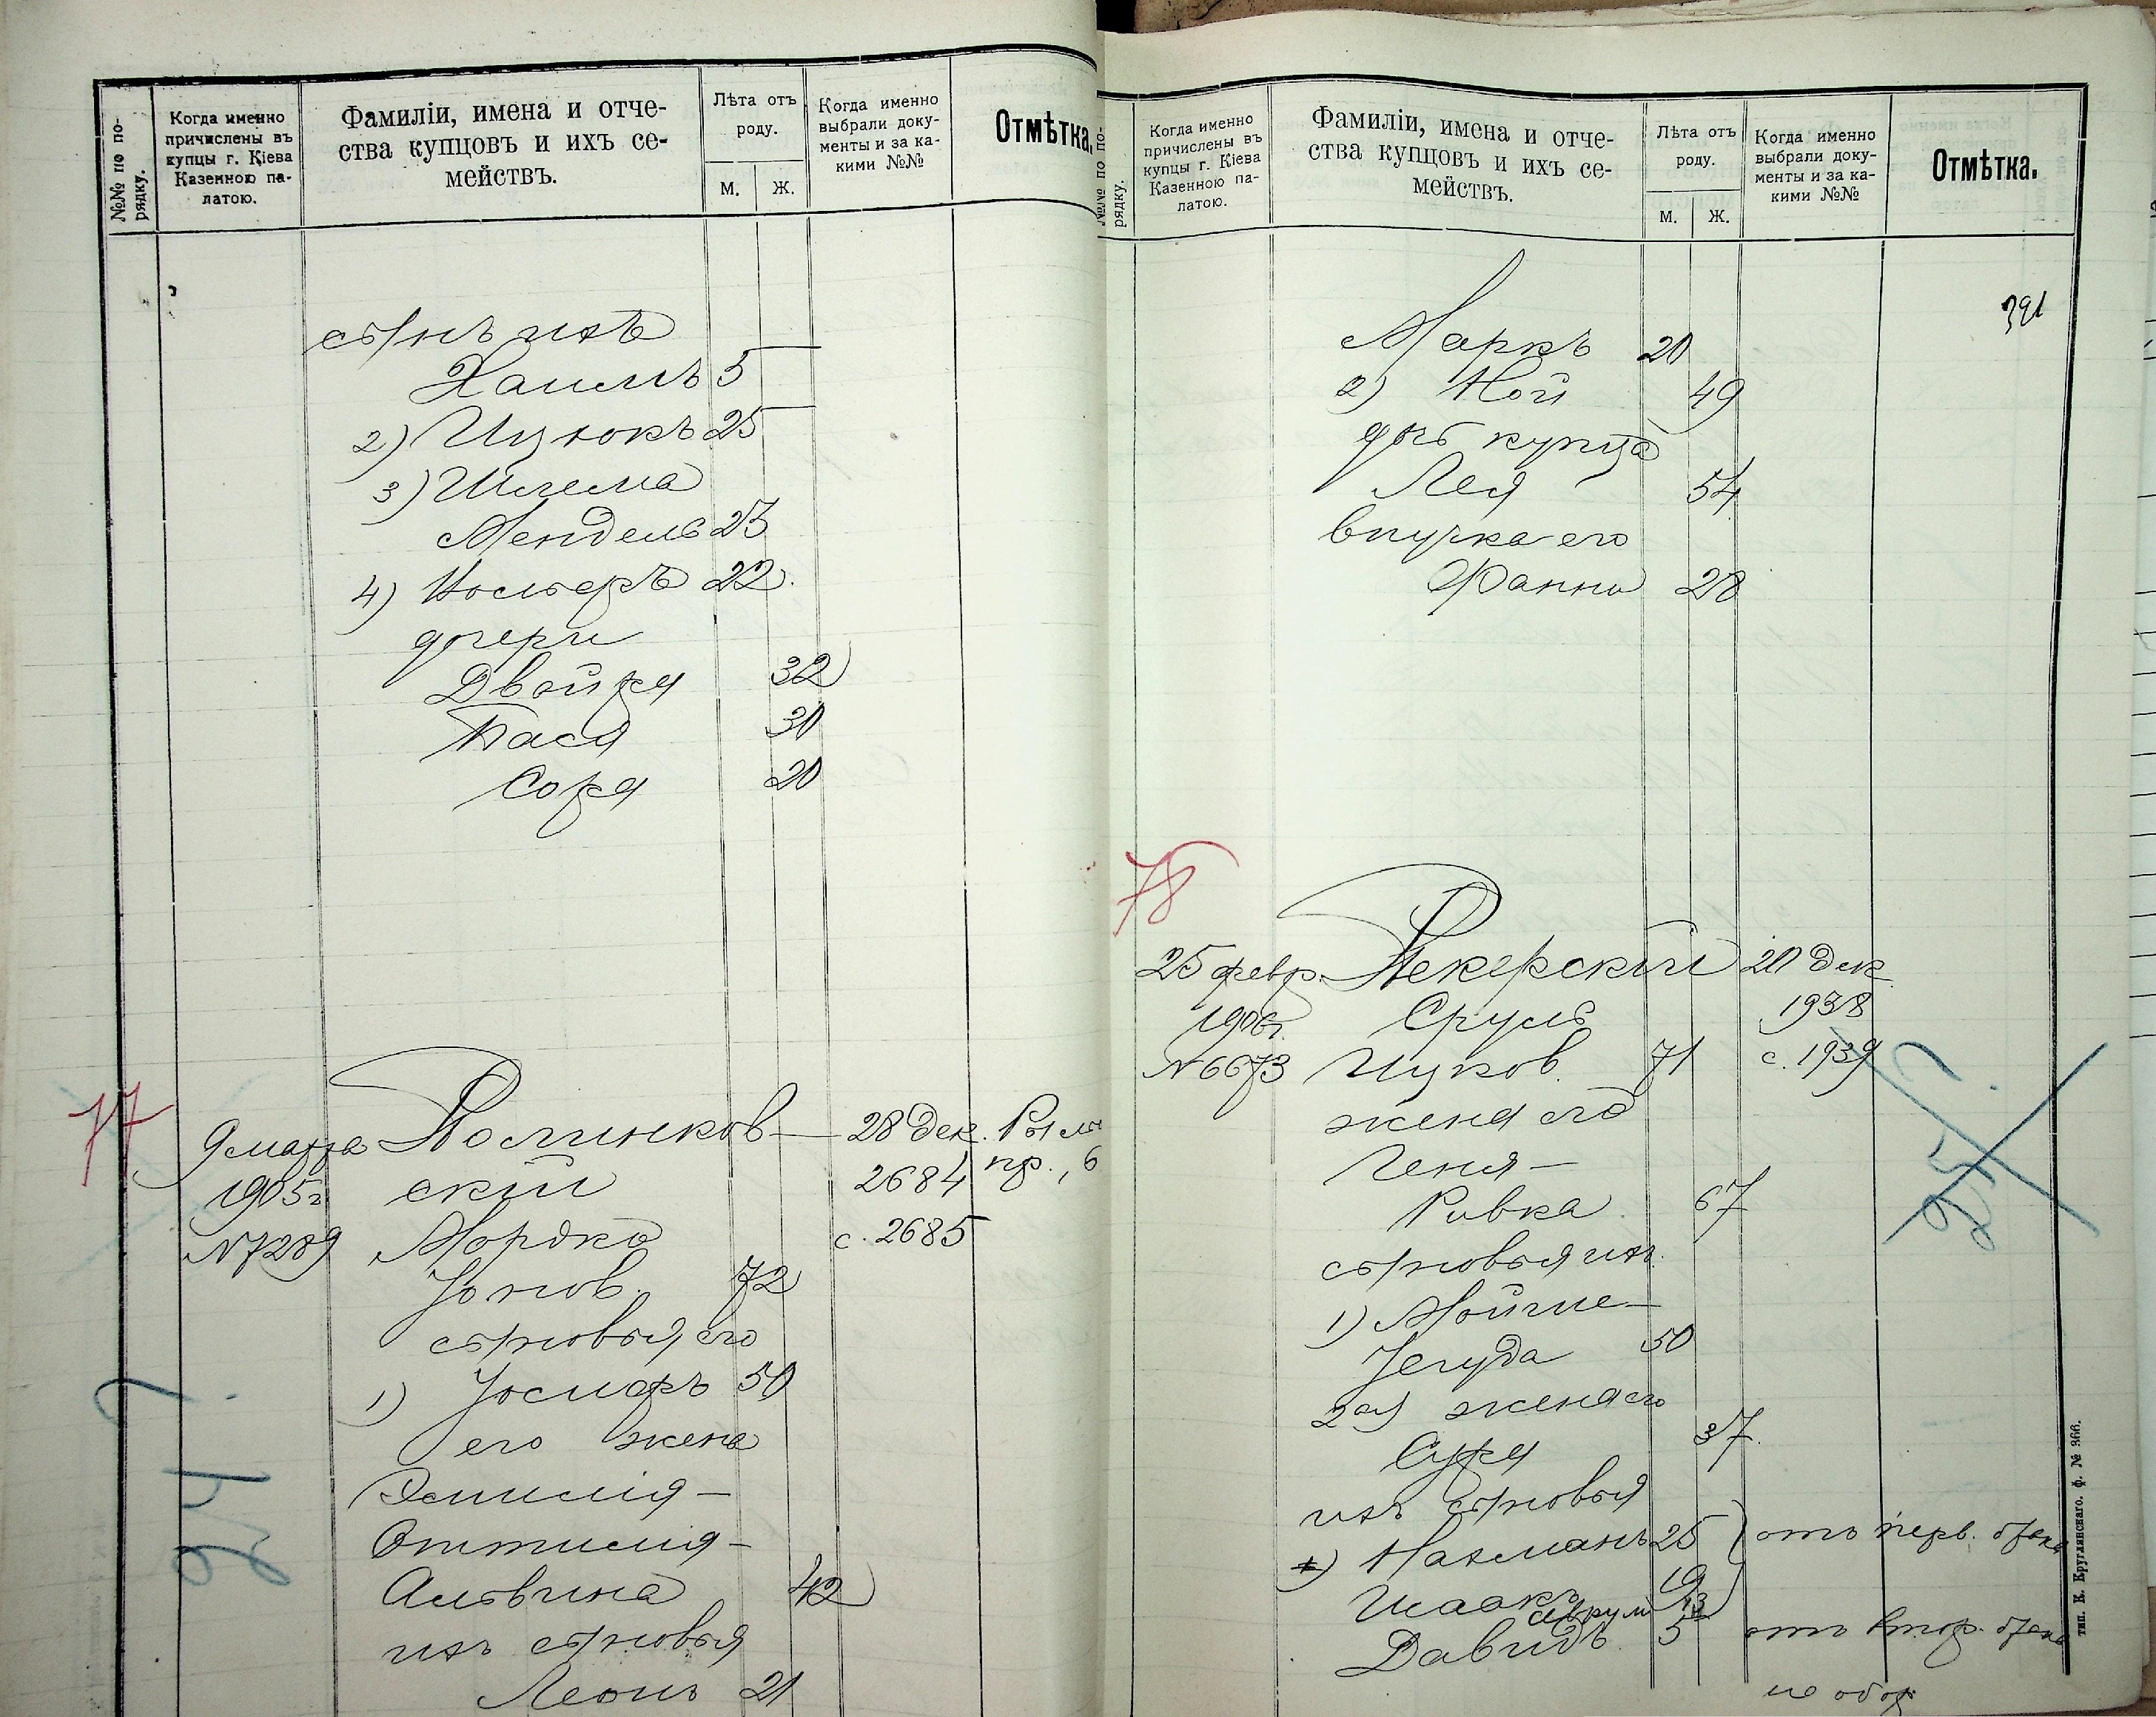 №№ по по-
рядку.
Когда именно
причислены въ
купцы г. Кіева
Казенною па-
латою.
Фамиліи, имена и отче-
ства купцовъ и ихъ се-
мействъ.
Лѣта отъ
роду.
М.
Ж.
Когда именно
выбрали доку-
менты и за ка-
кими №№
Отмѣтка.
сынъ ихъ
Хаимъ 5
2) Ицкокъ 25
3) Шлема
Мендель 23
4) 22
дочери
Двойра 32
Бася 30
Сора 20
77
9 марта Полинков- 28 дек.
1905 г скій 2684 пр., 6
№ 7289 Мордко с. 2685
Іонов. 72
сыновья его
1) Іосифъ 50
его жена
Эмилія-
Оттилія-
Альвина 42
ихъ сыновья
Леонъ 21
24
№№ по по-
рядку.
Когда именно
причислены въ
купцы г. Кіева
Казенною па-
латою.
Фамиліи, имена и отче-
ства купцовъ и ихъ се-
мействъ.
Лѣта отъ
роду.
М.
Ж.
Когда именно
выбрали доку-
менты и за ка-
кими №№
Отмѣтка.
391
Маркъ 20
2) Ной 49
дочь купца
Лея 54
внучка его
Фанни 28
78
25 февр. Пекерскій 20 дек
1906 г. Сруль 1938
№ 6673 Ицков. 71 с. 1939
жена его
Геня-
Ривка 67
сыновья ихъ
1) Мойше-
Іегуда 50
2ая) жена его
Сура 37
ихъ сыновья
1) Нахманъ 25 отъ перв. брака
Исаакъ 19
Аврум 13
Давидъ 5 отъ втор. брака
на обор.
25
тип. К. Круглянскаго. ф. № 366.